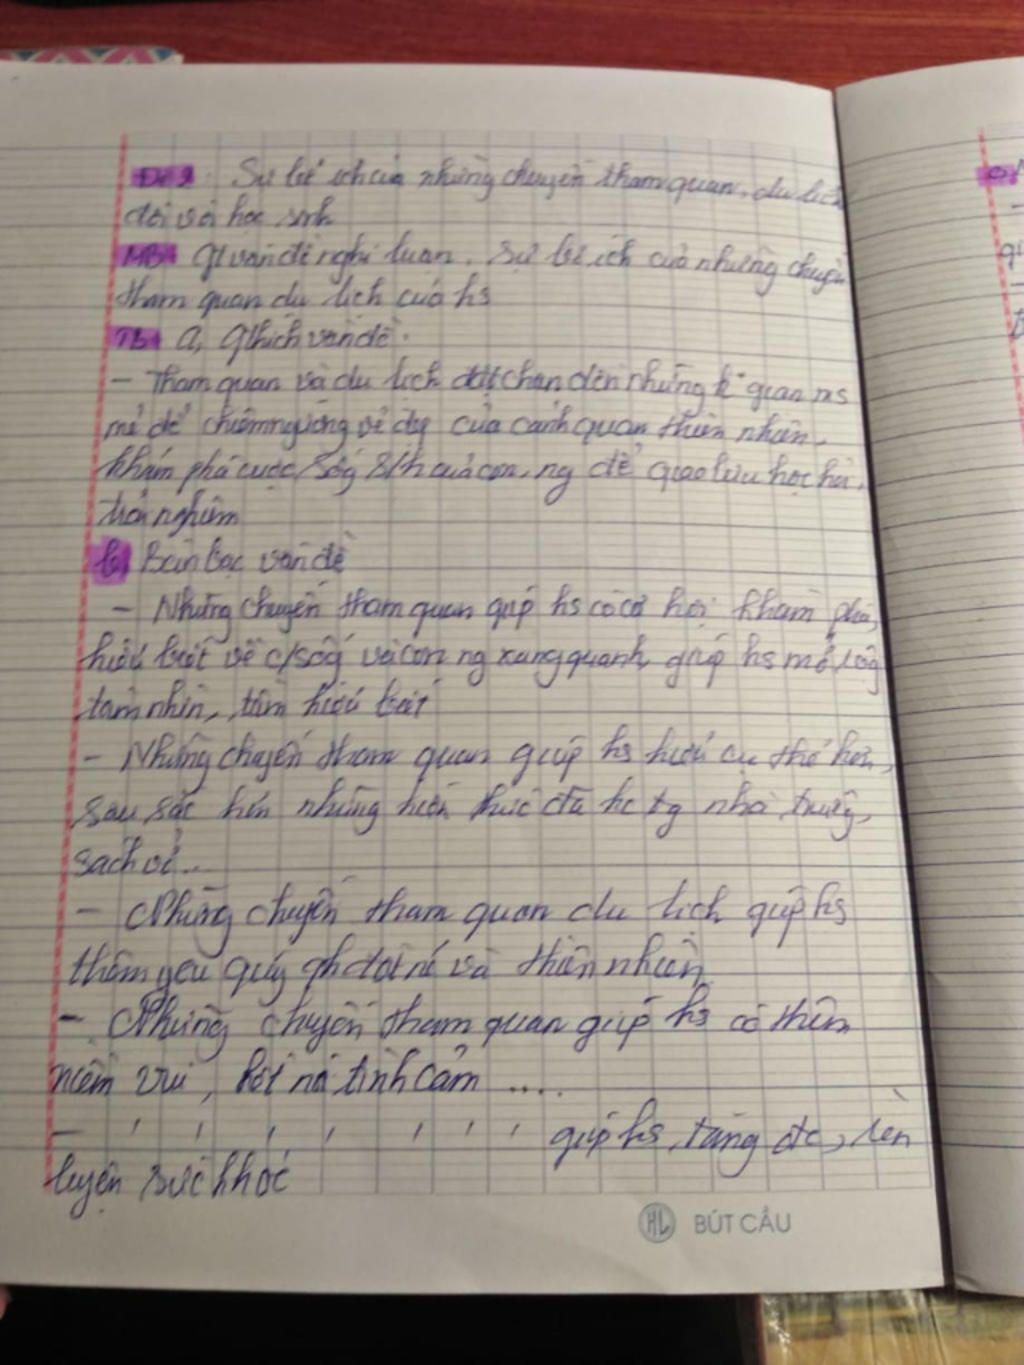 Đề 2: Sự bổ ích của những chuyến tham quan, du lịch
đối với học sinh
MB: Gt vấn đề nghị luận. Sự bổ ích của những chuyến
tham quan du lịch của hs
TB: a, Gthích vấn đề.
- Tham quan và du lịch đặt chân đến những k gian ms
mẻ để chiêm ngưỡng vẻ đẹp của cảnh quan thiên nhiên,
khám phá cuộc sống của con ng để giao lưu học hỏi,
trải nghiệm
b, Bàn bạc vấn đề
- Những chuyến tham quan giúp hs có cơ hội khám phá,
hiểu biết về c/sống và con ng xung quanh, giúp hs mở rộng
tầm nhìn, tầm hiểu biết
- Những chuyến tham quan giúp hs hiểu cụ thể hơn,
sâu sắc hơn những kiến thức đã hc tg nhà trường,
sách vở...
- Những chuyến tham quan du lịch giúp hs
thêm yêu quý và thiên nhiên
- Những chuyến tham quan giúp hs có thêm
niềm vui, kết nối tình cảm ....
- ' ' ' ' ' ' ' giúp hs tăng rèn
luyện sức khoẻ
HL BÚT CẦU